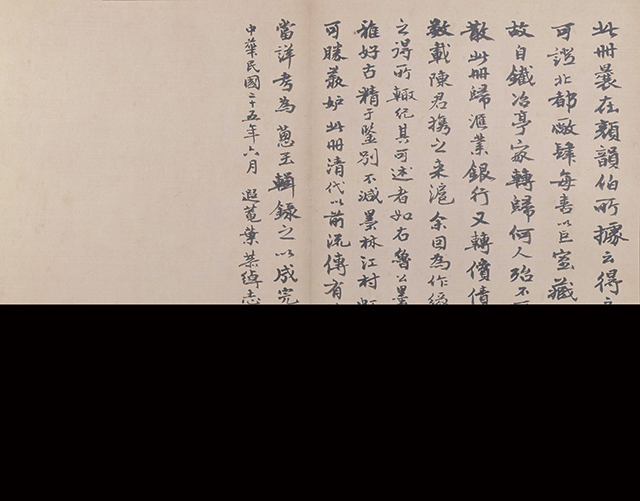 此冊曩在顏韻伯所據云得之
可證北都廠肆每喜以巨室藏
故自鐵冶亭家轉歸何人殆不可
散此冊歸滙業銀行又轉償債
數載陳君攜之來滬余因為作緣
之得所輒紀其可述者如右魯公墨
雅好古精于鑒別不減墨林江村
可勝羨妒此冊清代以前流傳有
當詳考為蔥玉輯錄之以成完
中華民國二十五年六月 遐菴葉恭綽志